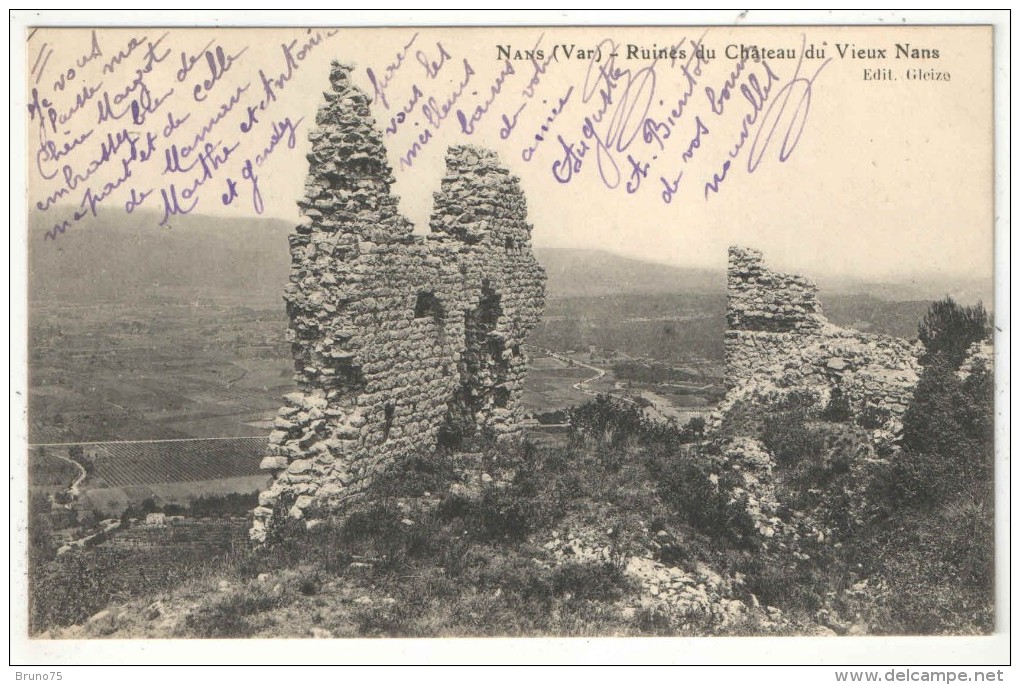 Nans (Var) - Ruines du Château du Vieux Nans
Edit. Gleize
Je vous
laisse ma
Chère Margot
embrassez bien de
ma part et de celle
de Maman
Marthe et Antoine
et grandey
pour
vous les
meilleurs
baisers
de votre
amie
Augusta
A Bientôt
de vos bonnes
nouvelles
Bruno75
www.delcampe.net